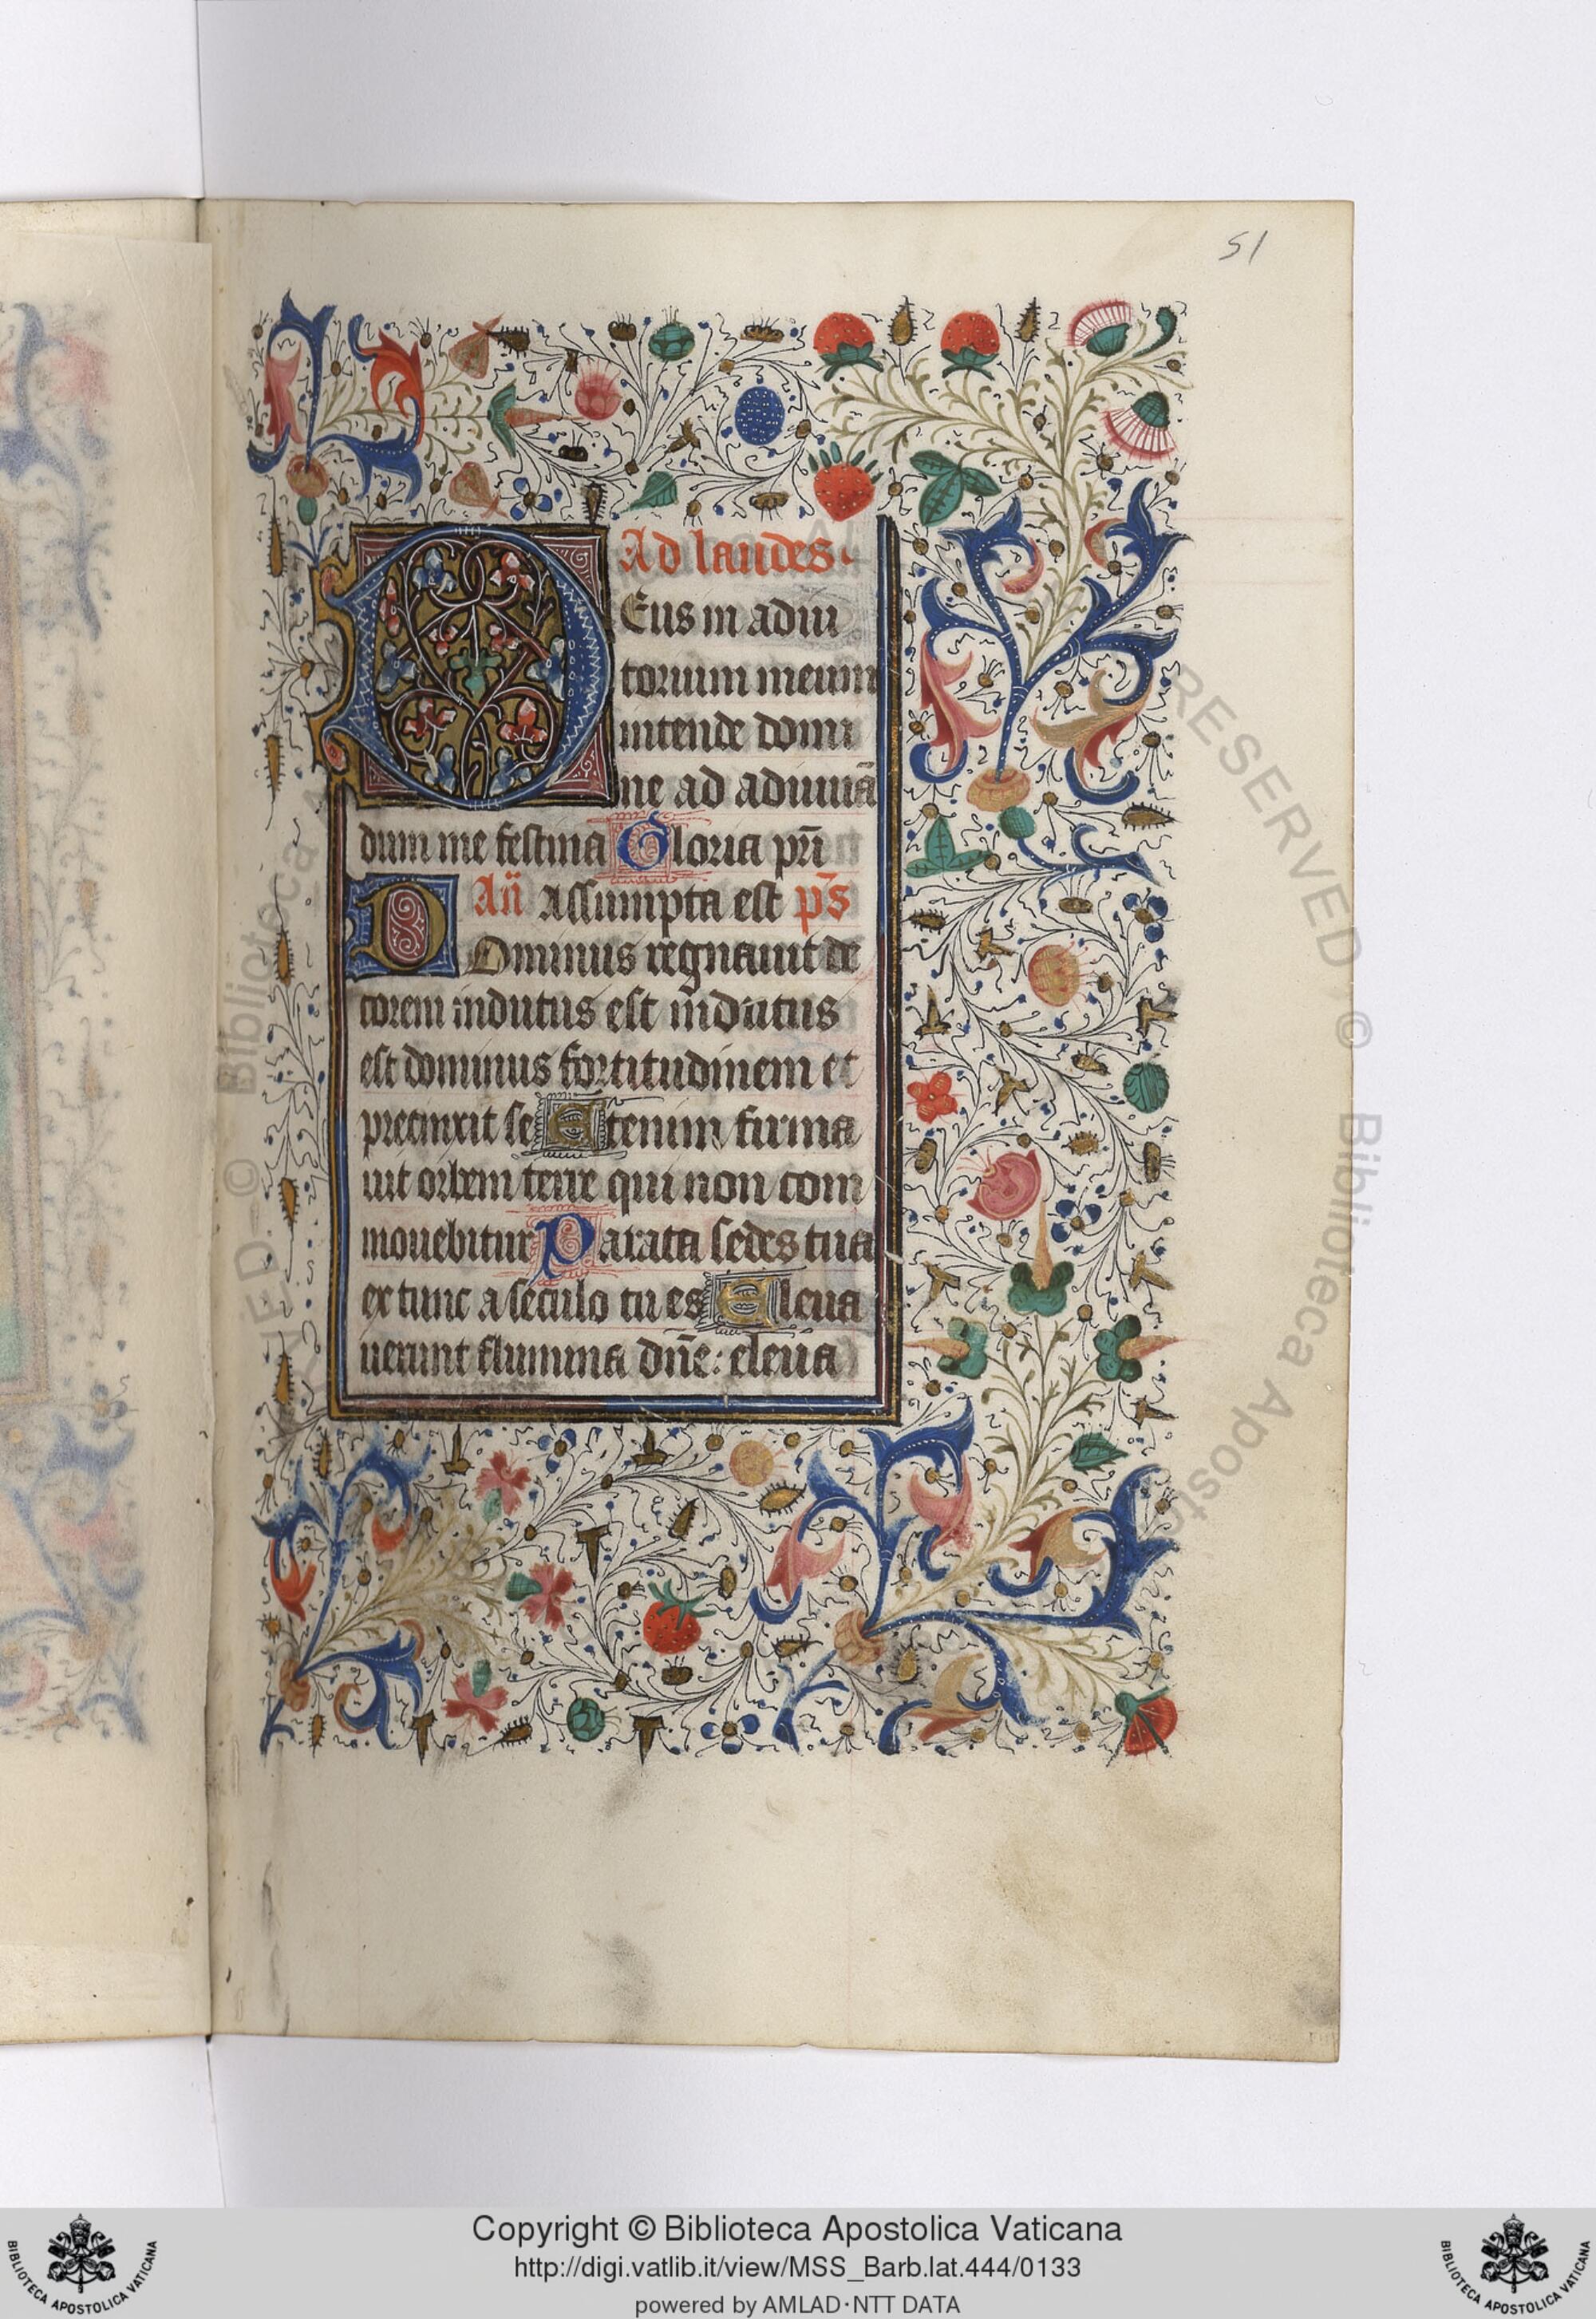 51
Ad laudes.
DEus in adiu
torium meum
intende domi
ne ad adiuuā
dum me festina Gloria pr̄i
Añ Assumpta est p̄s
DOminus regnauit de
corem indutus est indutus
est dominus fortitudinem et
precinxit se Etenim firma
uit orbem terre qui non com
mouebitur Parata sedes tua
ex tunc a seculo tu es Eleua
uerunt flumina dn̄e: eleua
RESERVED © Biblioteca Aposto
RVED © Biblioteca A
Copyright © Biblioteca Apostolica Vaticana
http://digi.vatlib.it/view/MSS_Barb.lat.444/0133
powered by AMLAD·NTT DATA
BIBLIOTECA APOSTOLICA VATICANA
BIBLIOTECA APOSTOLICA VATICANA